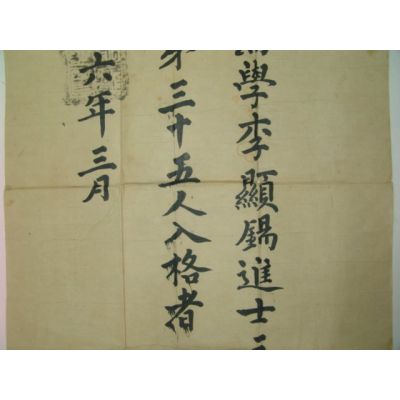 學李顯錫進士三
第三十五人入格者
六年三月